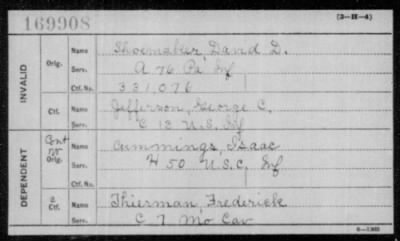 169908
(3—H—4)
INVALID
Orig.
Name Shoemaker, David D.
Serv. A 76 Pa Inf
Ctf. No. 331,076
Ctf.
Name Jefferson, George C.
Serv. C 13 U.S. Inf
DEPENDENT
Cont
Orig.
Name Cummings, Isaac
Serv. H 50 U.S.C. Inf
Ctf. No.
Ctf.
Name Thierman, Frederick
Serv. C 7 Mo Cav